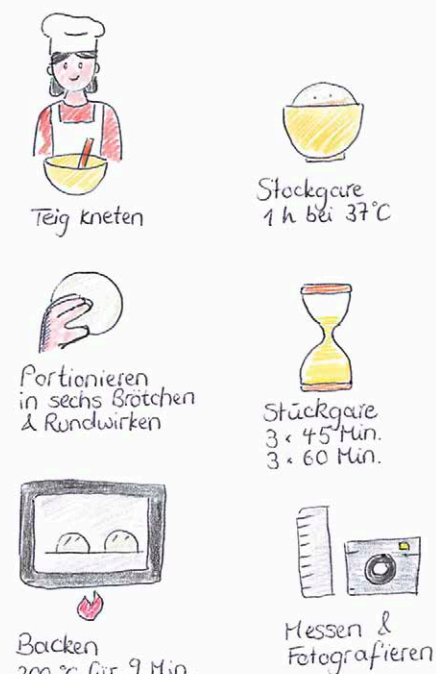 Teig kneten
Stockgare
1 h bei 37°C
Portionieren
in sechs Brötchen
& Rundwirken
Stückgare
3 × 45 Min.
3 × 60 Min.
Backen
200 °C für 9 Min.
Messen &
Fotografieren